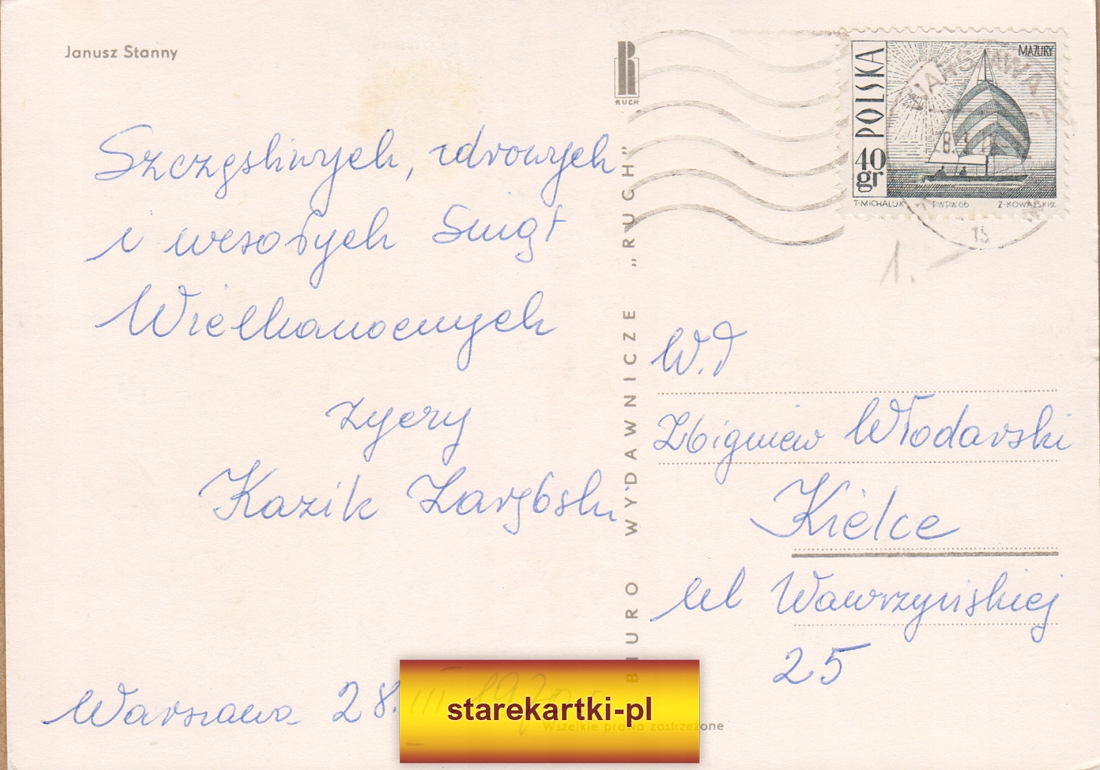 Janusz Stanny
RUCH
Szczęśliwych, zdrowych
i wesołych Świąt
Wielkanocnych
życzy
Kazik Zarębski
Warszawa 28. III 1970
BIURO WYDAWNICZE „RUCH”
Wszelkie prawa zastrzeżone
POLSKA
MAZURY
40
gr
T-MICHALUK PWPW 66 Z-KOWALSKI
WARSZAWA
28.
15
1.
W.P
Zbigniew Włodarski
Kielce
ul Wawrzyńskiej
25
starekartki-pl